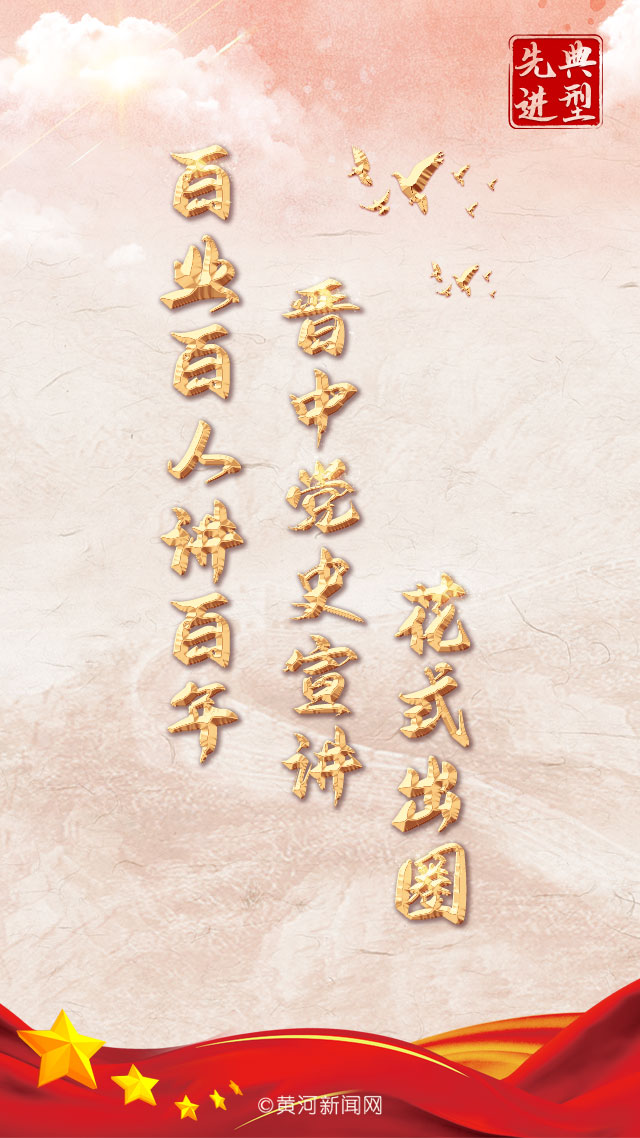 先进典型
百业百人讲百年
晋中党史宣讲
花式出圈
©黄河新闻网